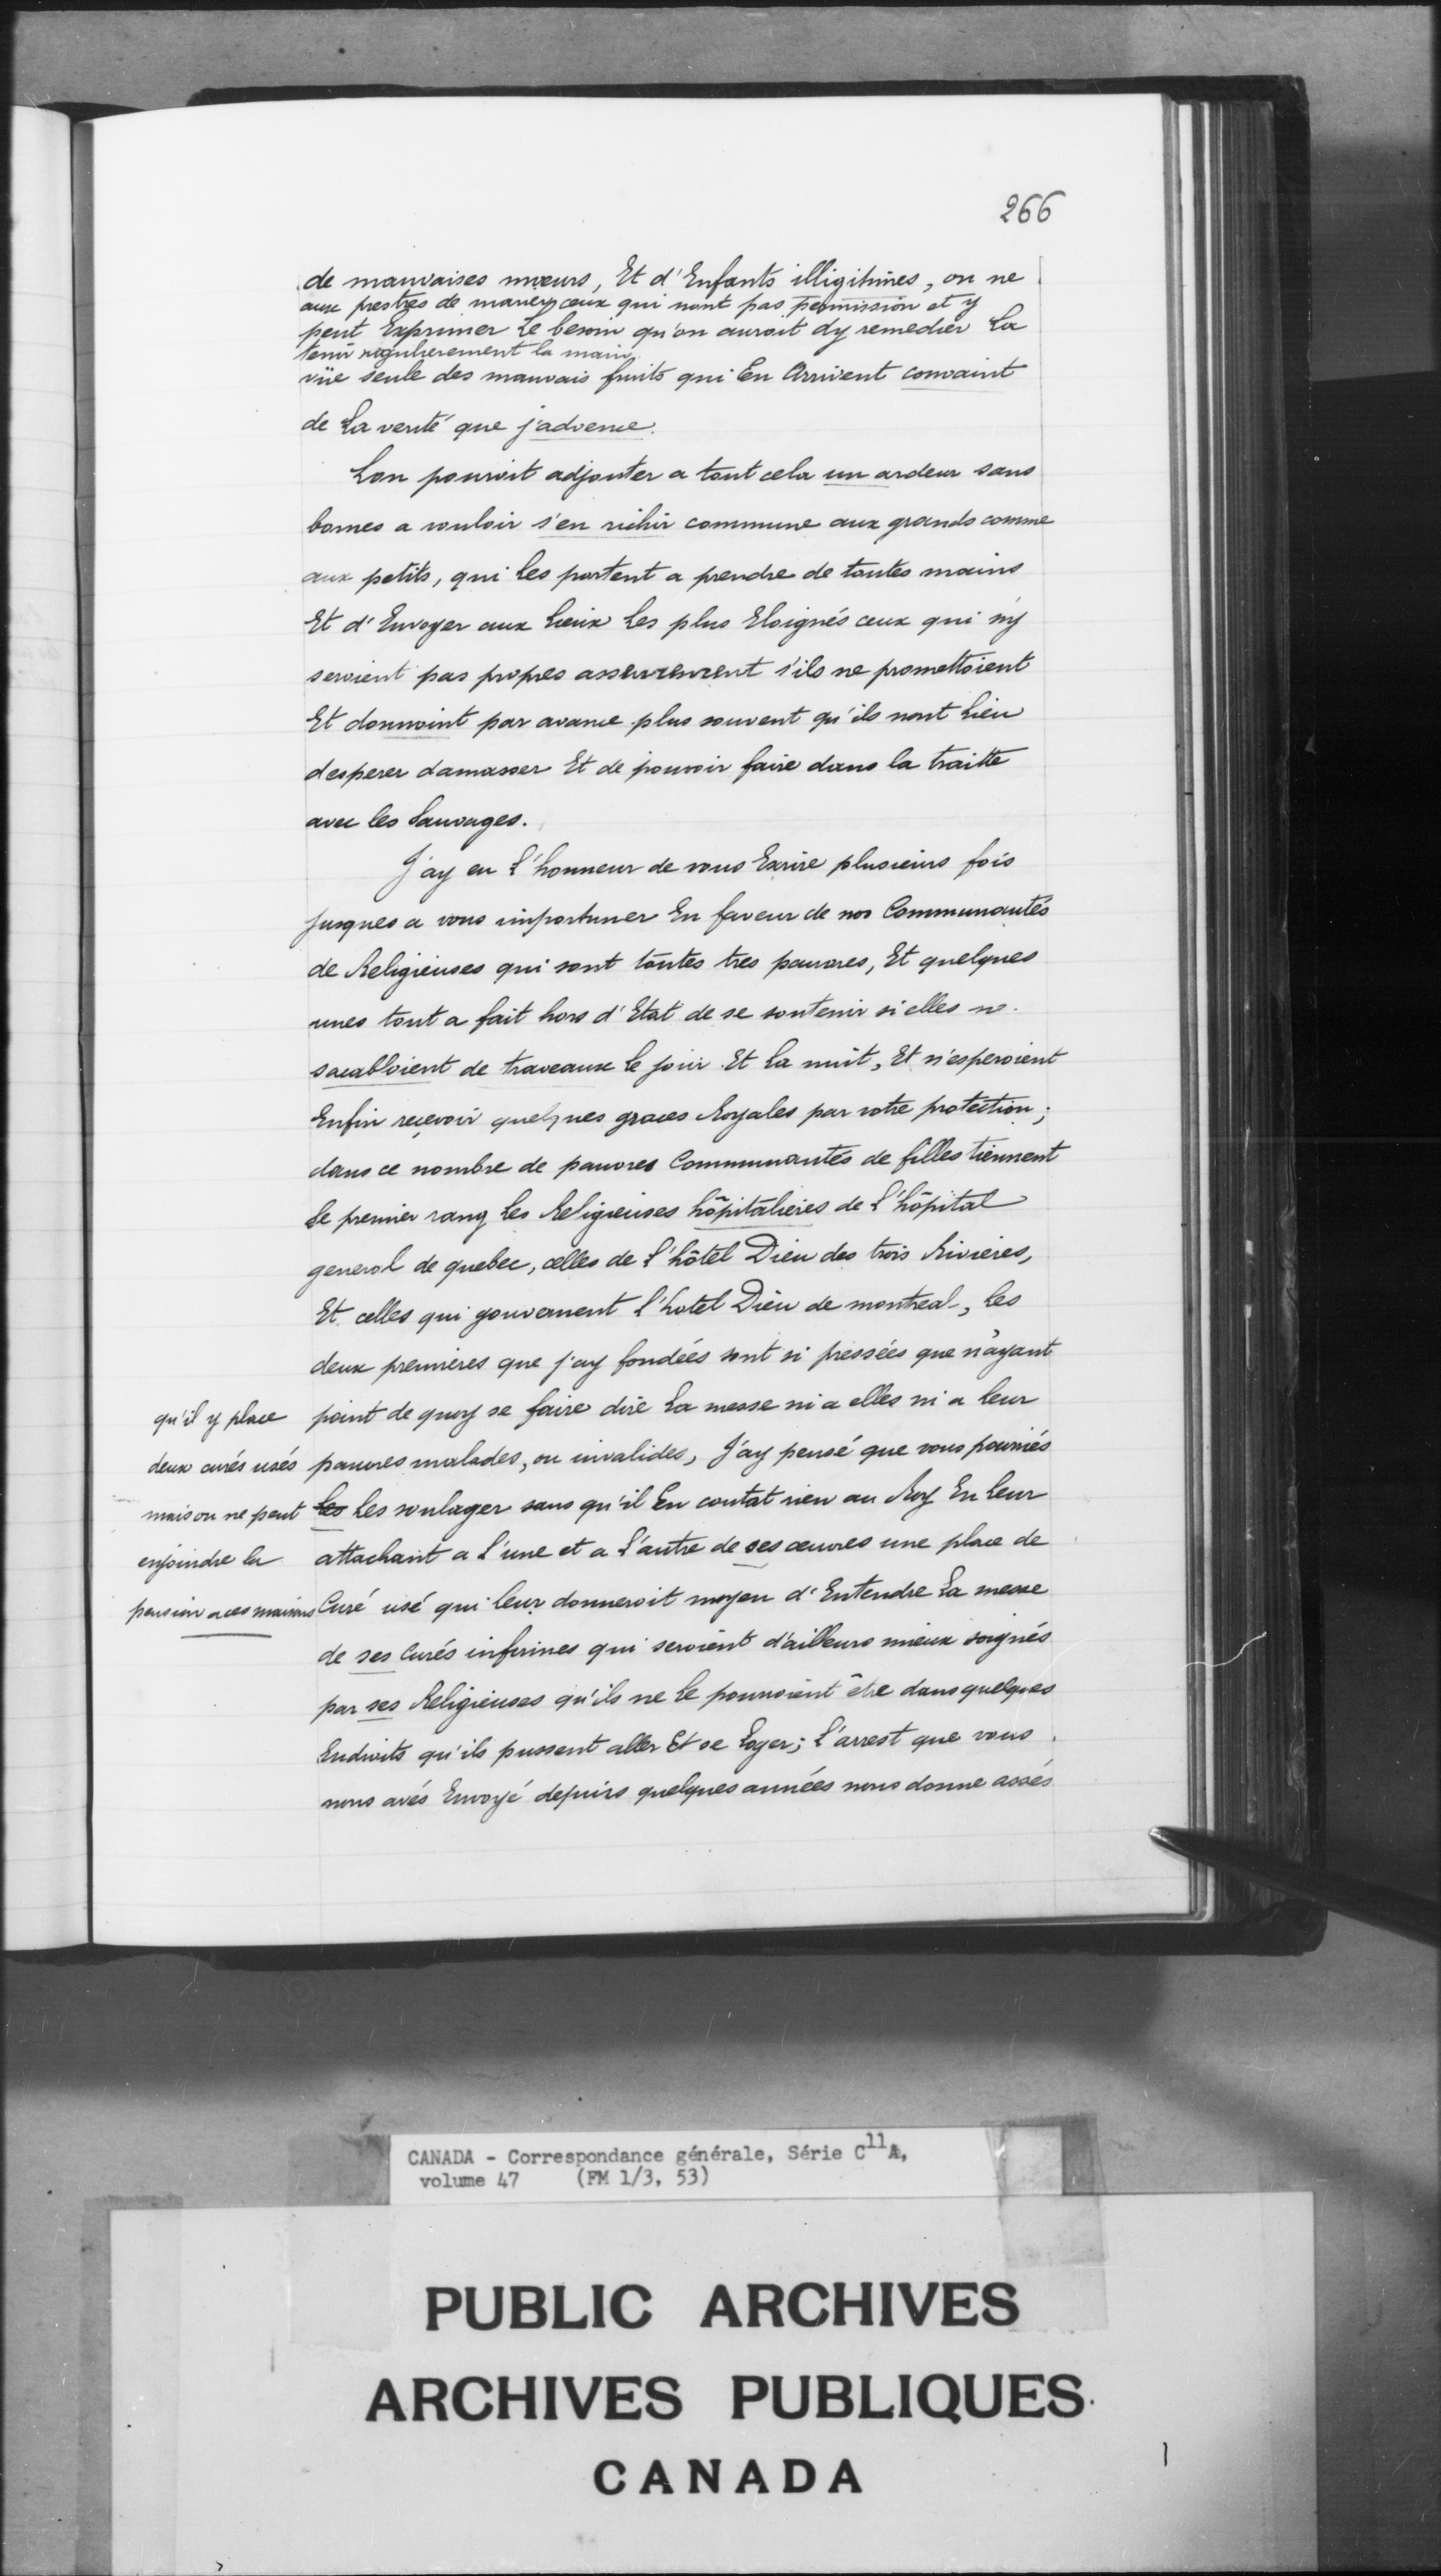 266
de mauvaises mœurs, Et d'Enfants illigitimes, on ne
aux prestres de marier ceux qui nont pas permission et y
peut Exprimer Le besoin qu'on auroit dy remedier La
tenir regulierement la main
vüe seule des mauvais fruits qui En Arrivent convaint
de La verité que j'advence.
Lon pouroit adjouter a tout cela un ardeur sans
bornes a vouloir s'en richir commune aux grands comme
aux petits, qui Les portent a prendre de toutes mains
Et d'Envoyer aux Lieux Les plus Eloignés ceux qui n'y
seroient pas propres assurement s'ils ne promettoient
Et donnoint par avance plus souvent qu'ils nont Lieu
desperer damasser Et de pouvoir faire dans la traitte
avec les Sauvages.
J'ay eu L'honneur de vous Ecrire plusieurs fois
Jusques a vous importuner En faveur de nos Communautés
de Religieuses qui sont toutes tres pauvres, Et quelques
unes tout a fait hors d'Etat de se soutenir si elles ne
sacabloient de traveaux Le jour Et La nuit, Et n'esperoient
Enfin reçevoir quelques graces Royales par votre protection;
dans ce nombre de pauvres Communautés de filles tiennent
Le premier rang Les Religieuses hôpitalieres de L'hôpital
general de quebec, celles de L'hôtel Dieu des trois Rivieres,
Et celles qui gouvernent L'hotel Dieu de montreal, Les
deux premieres que j'ay fondées sont si pressées que n'ayant
point de quoy se faire dire La messe ni a elles ni a leur
pauvres malades, ou invalides, J'ay pensé que vous pouriés
les Les soulager sans qu'il En coutat rien au Roy En Leur
attachant a L'une et a L'autre de ses œuvres une place de
Curé usé qui leur donneroit moyen d'Entendre La messe
de ses Curés infirmes qui seroient d'ailleurs mieux soignés
par ses Religieuses qu'ils ne Le pourroient être dans quelques
Endroits qu'ils pussent aller Et se Loger; L'arrest que vous
nous avés Envoyé depuis quelques années nous donne assés
qu'il y place
deux curés usés
mais on ne peut
enjoindre la
pension a ces maisons
CANADA - Correspondance générale, Série C11A,
volume 47 (FM 1/3, 53)
PUBLIC ARCHIVES
ARCHIVES PUBLIQUES
CANADA